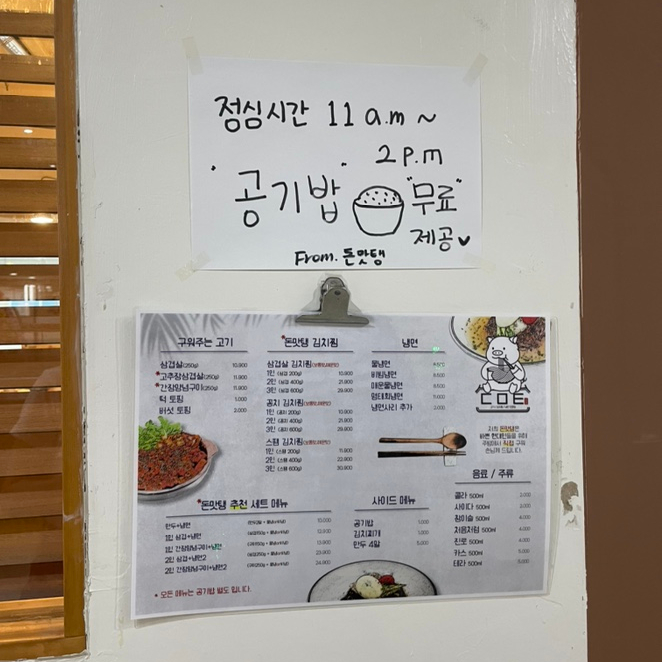 점심시간 11 a.m ~
2 p.m
"공기밥" "무료"
제공♥
From. 돈맛탱
구워주는 고기
삼겹살(250g) 10,900
*고추장삼겹살(250g) 11,900
*간장양념구이(250g) 11,900
떡 토핑 1,000
버섯 토핑 2,000
*돈맛탱 김치찜
삼겹살 김치찜
1인 (삼겹 200g) 10,900
2인 (삼겹 400g) 21,900
3인 (삼겹 600g) 29,900
꽁치 김치찜
1인 (꽁치 200g) 10,900
2인 (꽁치 400g) 21,900
3인 (꽁치 600g) 29,900
스팸 김치찜
1인 (스팸 200g) 11,900
2인 (스팸 400g) 22,900
3인 (스팸 600g) 30,900
냉면
물냉면
비빔냉면
매운물냉면
명태회냉면
냉면사리 추가
저희 돈맛탱은
바쁜 현대인들을 위해
주방에서 직접 구워
손님께 드립니다.
음료 / 주류
콜라 500ml 2,000
사이다 500ml 2,000
참이슬 500ml
처음처럼 500ml
진로 500ml
카스 500ml
테라 500ml
*돈맛탱 추천 세트 메뉴
만두+냉면 10,000
1인 삼겹+냉면
1인 간장양념구이+냉면
2인 삼겹+냉면2 23,900
2인 간장양념구이+냉면2 24,900
* 모든 메뉴는 공기밥 별도 입니다.
사이드 메뉴
공기밥 1,000
김치찌개
만두 4알 5,000